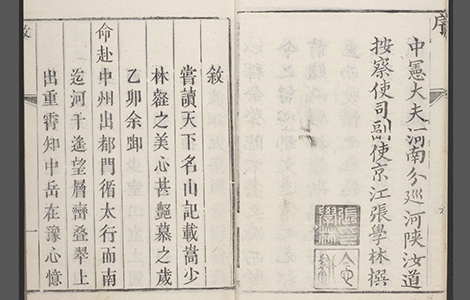 序
中憲大夫河南分巡河陝汝道
按察使司副使京江張學林撰
敘
嘗讀天下名山記載嵩少
林壑之美心甚豔慕之歲
乙卯余啣
命赴中州出都門循太行而南
迄河干遙望層巒疊翠上
出重霄知中岳在豫心憶
一